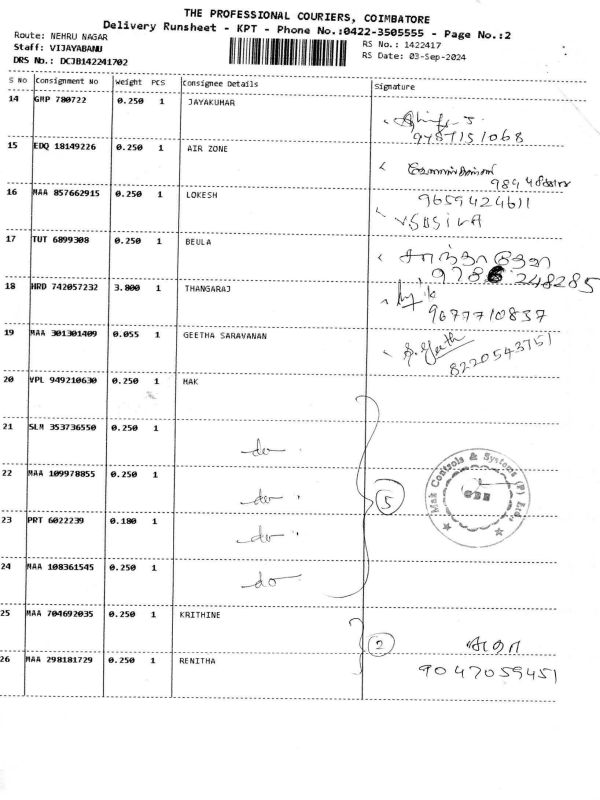 THE PROFESSIONAL COURIERS, COIMBATORE
Delivery Runsheet - KPT - Phone No.:0422-3505555 - Page No.:2
Route: NEHRU NAGAR
RS No.: 1422417
Staff: VIJAYABANU
RS Date: 03-Sep-2024
DRS No.: DCJB142241702
S No Consignment No Weight PCS Consignee Details Signature
14 GMP 780722 0.250 1 JAYAKUMAR
9487151068
15 EDQ 18149226 0.250 1 AIR ZONE
16 MAA 857662915 0.250 1 LOKESH 9659424611
17 TUT 6899308 0.250 1 BEULA
248285
18 HRD 742057232 3.800 1 THANGARAJ
9677710837
19 MAA 301301409 0.055 1 GEETHA SARAVANAN
8220543751
20 VPL 949210630 0.250 1 MAK
21 SLM 353736550 0.250 1
do
22 MAA 109978855 0.250 1
do
5
Mak Controls & Systems (P) Ltd.
23 PRT 6022239 0.180 1
do
24 MAA 108361545 0.250 1
do
25 MAA 704692035 0.250 1 KRITHINE
2
26 MAA 298181729 0.250 1 RENITHA
9047059451